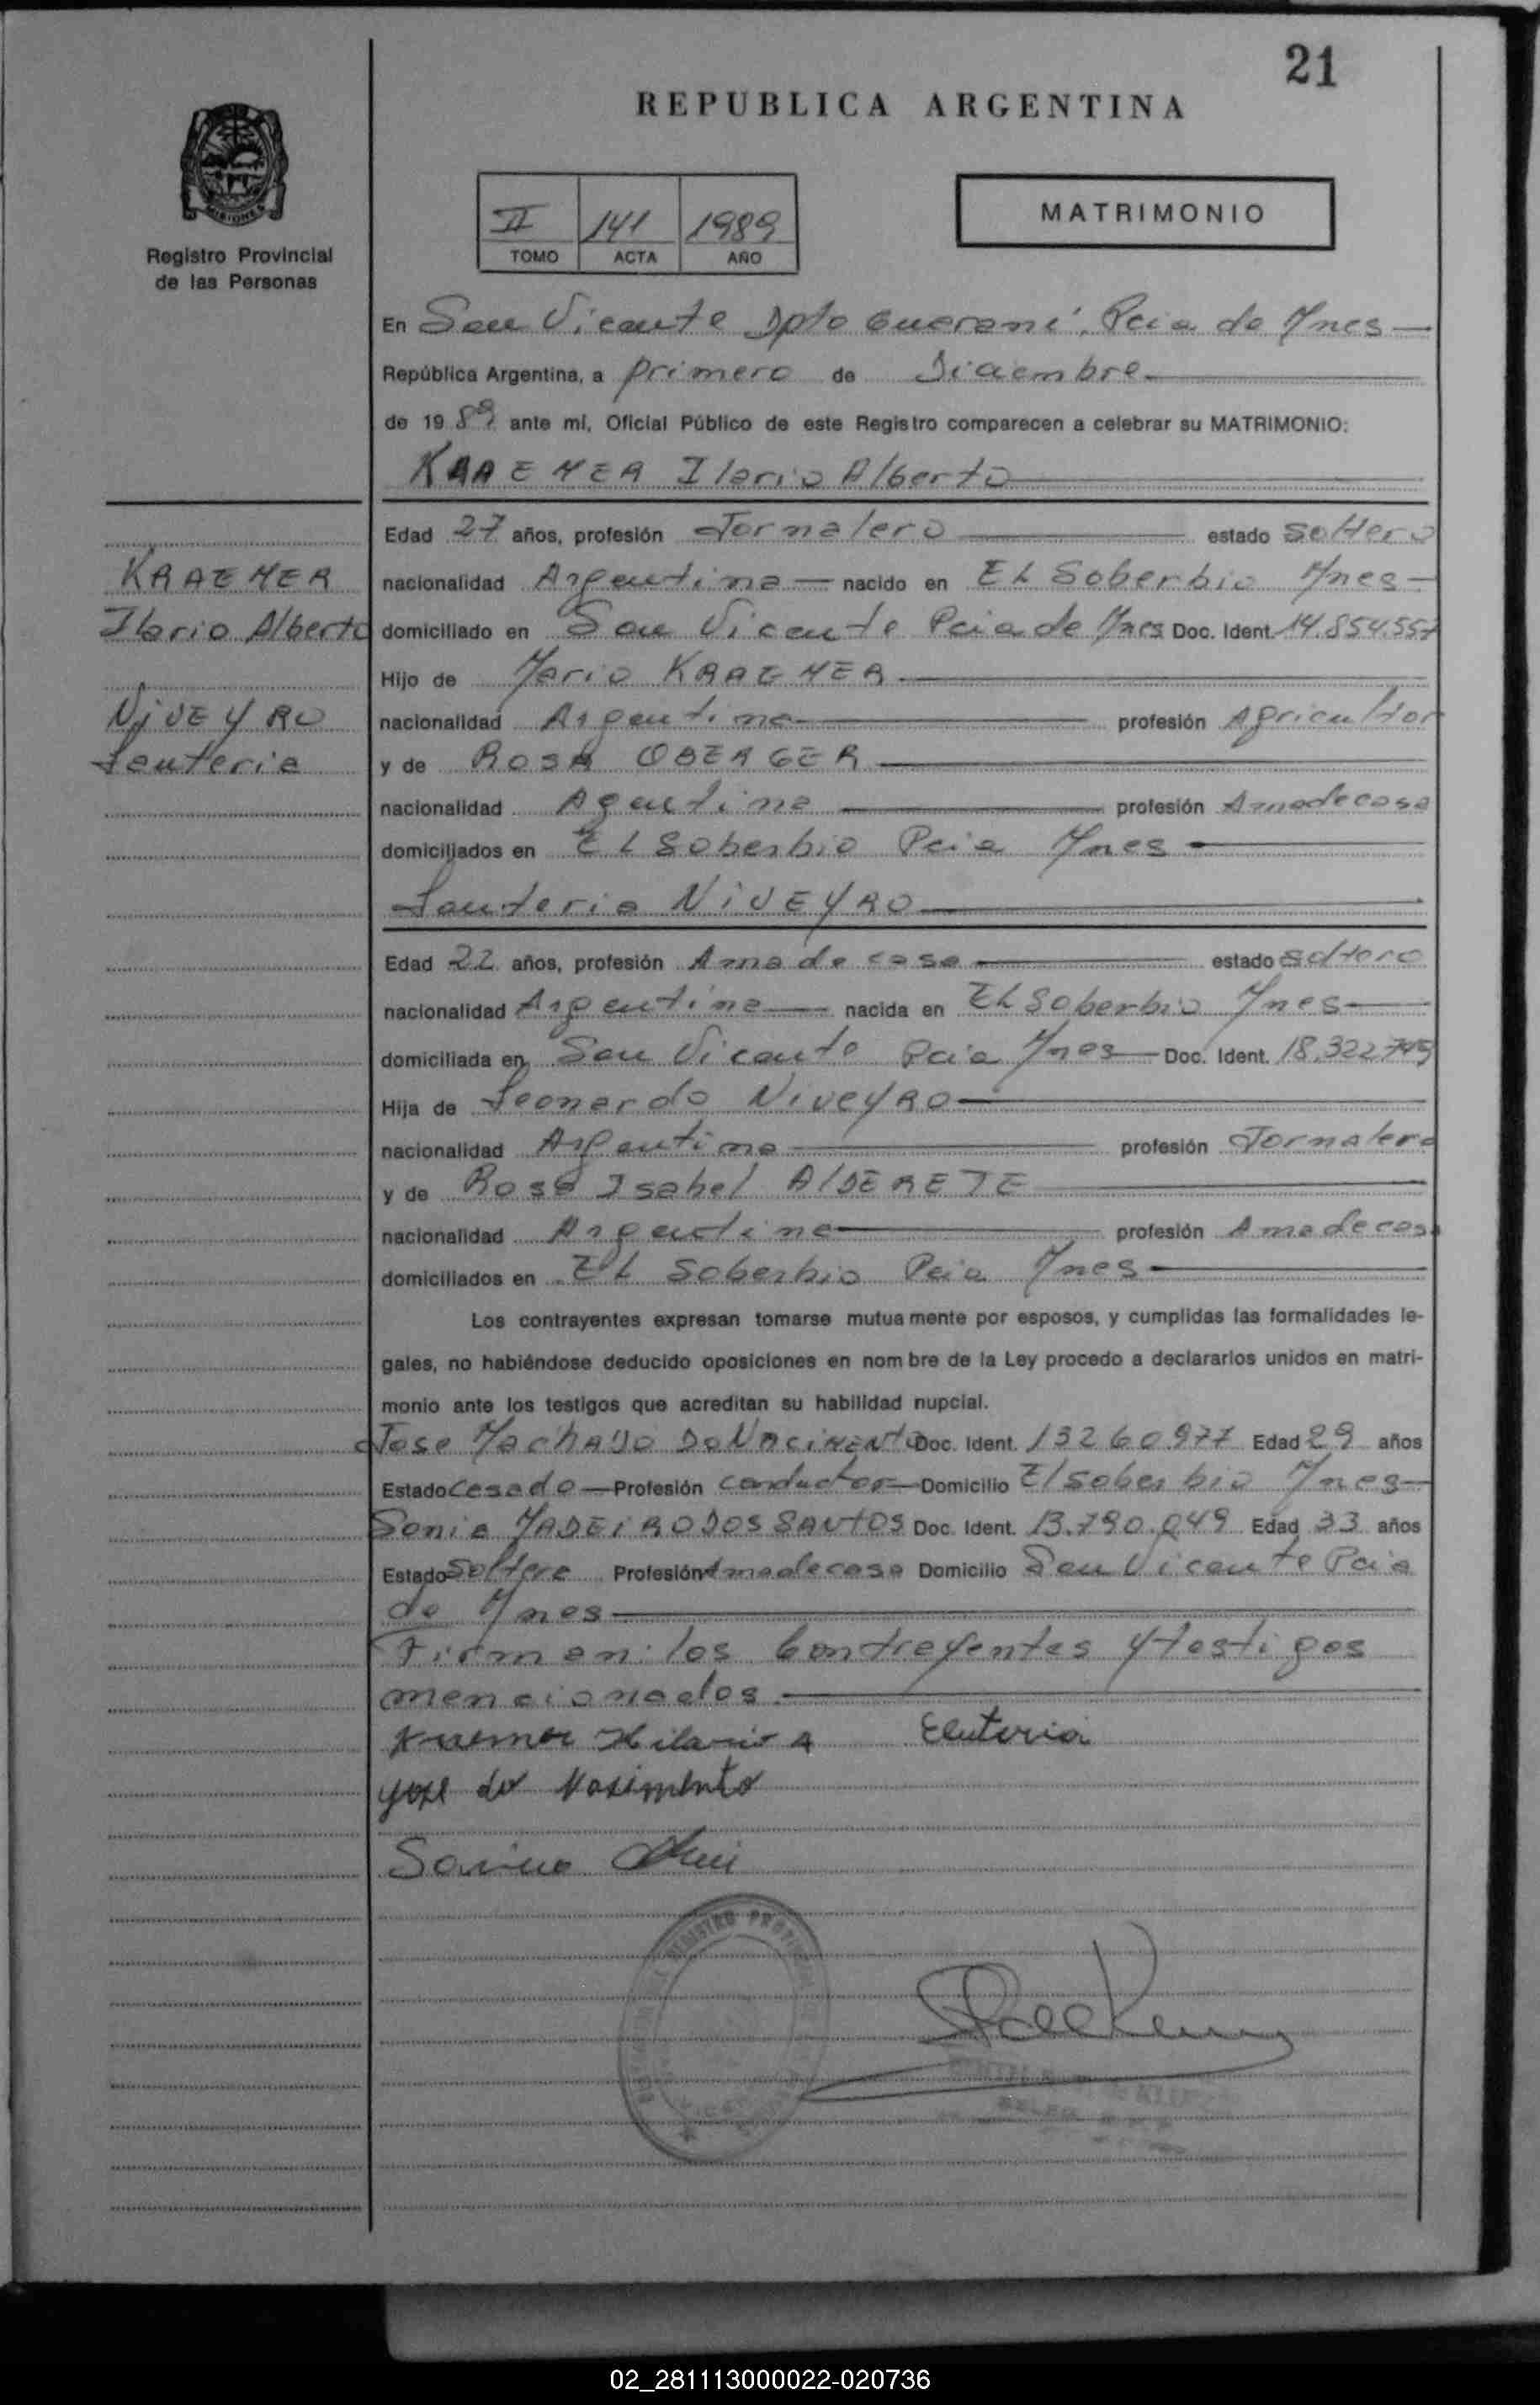 21
REPUBLICA ARGENTINA
MISIONES
Registro Provincial
de las Personas
II 141 1989
TOMO ACTA AÑO
MATRIMONIO
En San Vicente Dpto Guarani, Pcia de Mnes
República Argentina, a primero de Diciembre
de 1989 ante mí, Oficial Público de este Registro comparecen a celebrar su MATRIMONIO:
KRAEMER Ilario Alberto
Edad 27 años, profesión Jornalero estado soltero
KRAEMER
nacionalidad Argentina nacido en EL Soberbio Mnes
Ilario Alberto
domiciliado en San Vicente Pcia de Mnes Doc. Ident. 14.854.557
Hijo de Mario KRAEMER
NiVEYRO
nacionalidad Argentina profesión Agricultor
Leuteria
y de Rosa OBERGER
nacionalidad Agentina profesión Ama de casa
domiciliados en EL Soberbio Pcia Mnes
Leuteria NiVEYRO
Edad 22 años, profesión Ama de casa estado soltero
nacionalidad Argentina nacida en EL Soberbio Mnes
domiciliada en San Vicente Pcia Mnes Doc. Ident. 18.322.745
Hija de Leonardo NiveyRO
nacionalidad Argentina profesión Jornalero
y de Rosa Isabel AlDERETE
nacionalidad Argentina profesión Ama de casa
domiciliados en EL Soberbio Pcia Mnes
Los contrayentes expresan tomarse mutuamente por esposos, y cumplidas las formalidades le-
gales, no habiéndose deducido oposiciones en nombre de la Ley procedo a declararlos unidos en matri-
monio ante los testigos que acreditan su habilidad nupcial.
Jose Machado Do NaciMENTO Doc. Ident. 13260.977 Edad 29 años
Estado Casado Profesión conductor Domicilio El soberbio Mnes
Sonia MADEiRO DOS SANTOS Doc. Ident. 13.790.049 Edad 33 años
Estado soltera Profesión Ama de casa Domicilio San Vicente Pcia
de Mnes
Firman: los Contrayentes y testigos
mencionados.
Kraemer Hilario A Eluteria
yose do Nasimento
REGISTRO PROVINCIAL
02_281113000022-020736